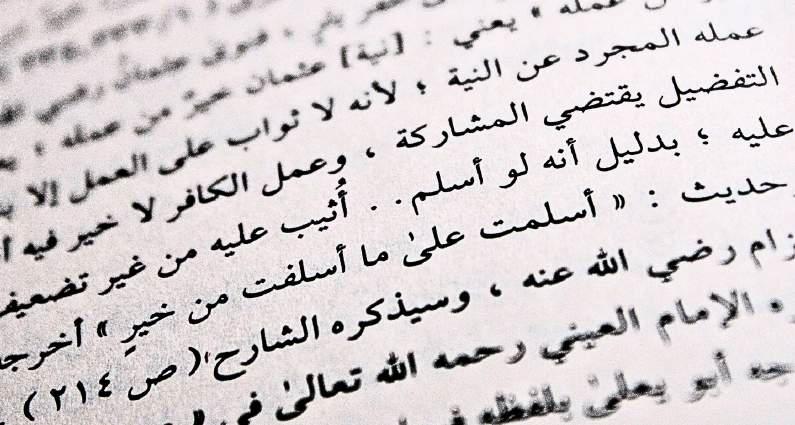 عمله » يعني : [نية] عثمان خيرٌ من عمله ؛
عمله المجرد عن النية ؛ لأنه لا ثواب على العمل إلا
التفضيل يقتضي المشاركة ، وعمل الكافر لا خير فيه
عليه ؛ بدليل أنه لو أسلم . . أُثيب عليه من غير تضعيف
حديث : « أسلمت علىٰ ما أسلفت من خيرٍ » أخرجه
رضي الله عنه ، وسيذكره الشارح ( ص ٢١٤ )
الإمام العيني رحمه الله تعالىٰ في
أبو يعلىٰ بلفظه